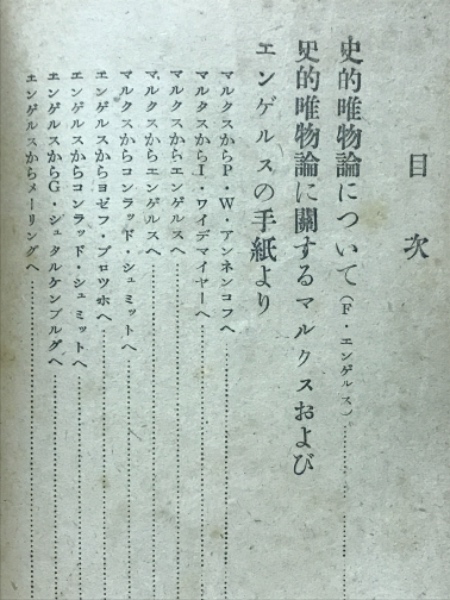 目次
史的唯物論について(F・エンゲルス)
史的唯物論に關するマルクスおよび
エンゲルスの手紙より
マルクスからP・W・アンネンコフへ
マルクスからI・ワイデマイヤーへ
マルクスからエンゲルスへ
マルクスからエンゲルスへ
マルクスからコンラッド・シュミットへ
エンゲルスからヨゼフ・ブロッホへ
エンゲルスからコンラッド・シュミットへ
エンゲルスからG・シュタルケンブルグへ
エンゲルスからメーリングへ